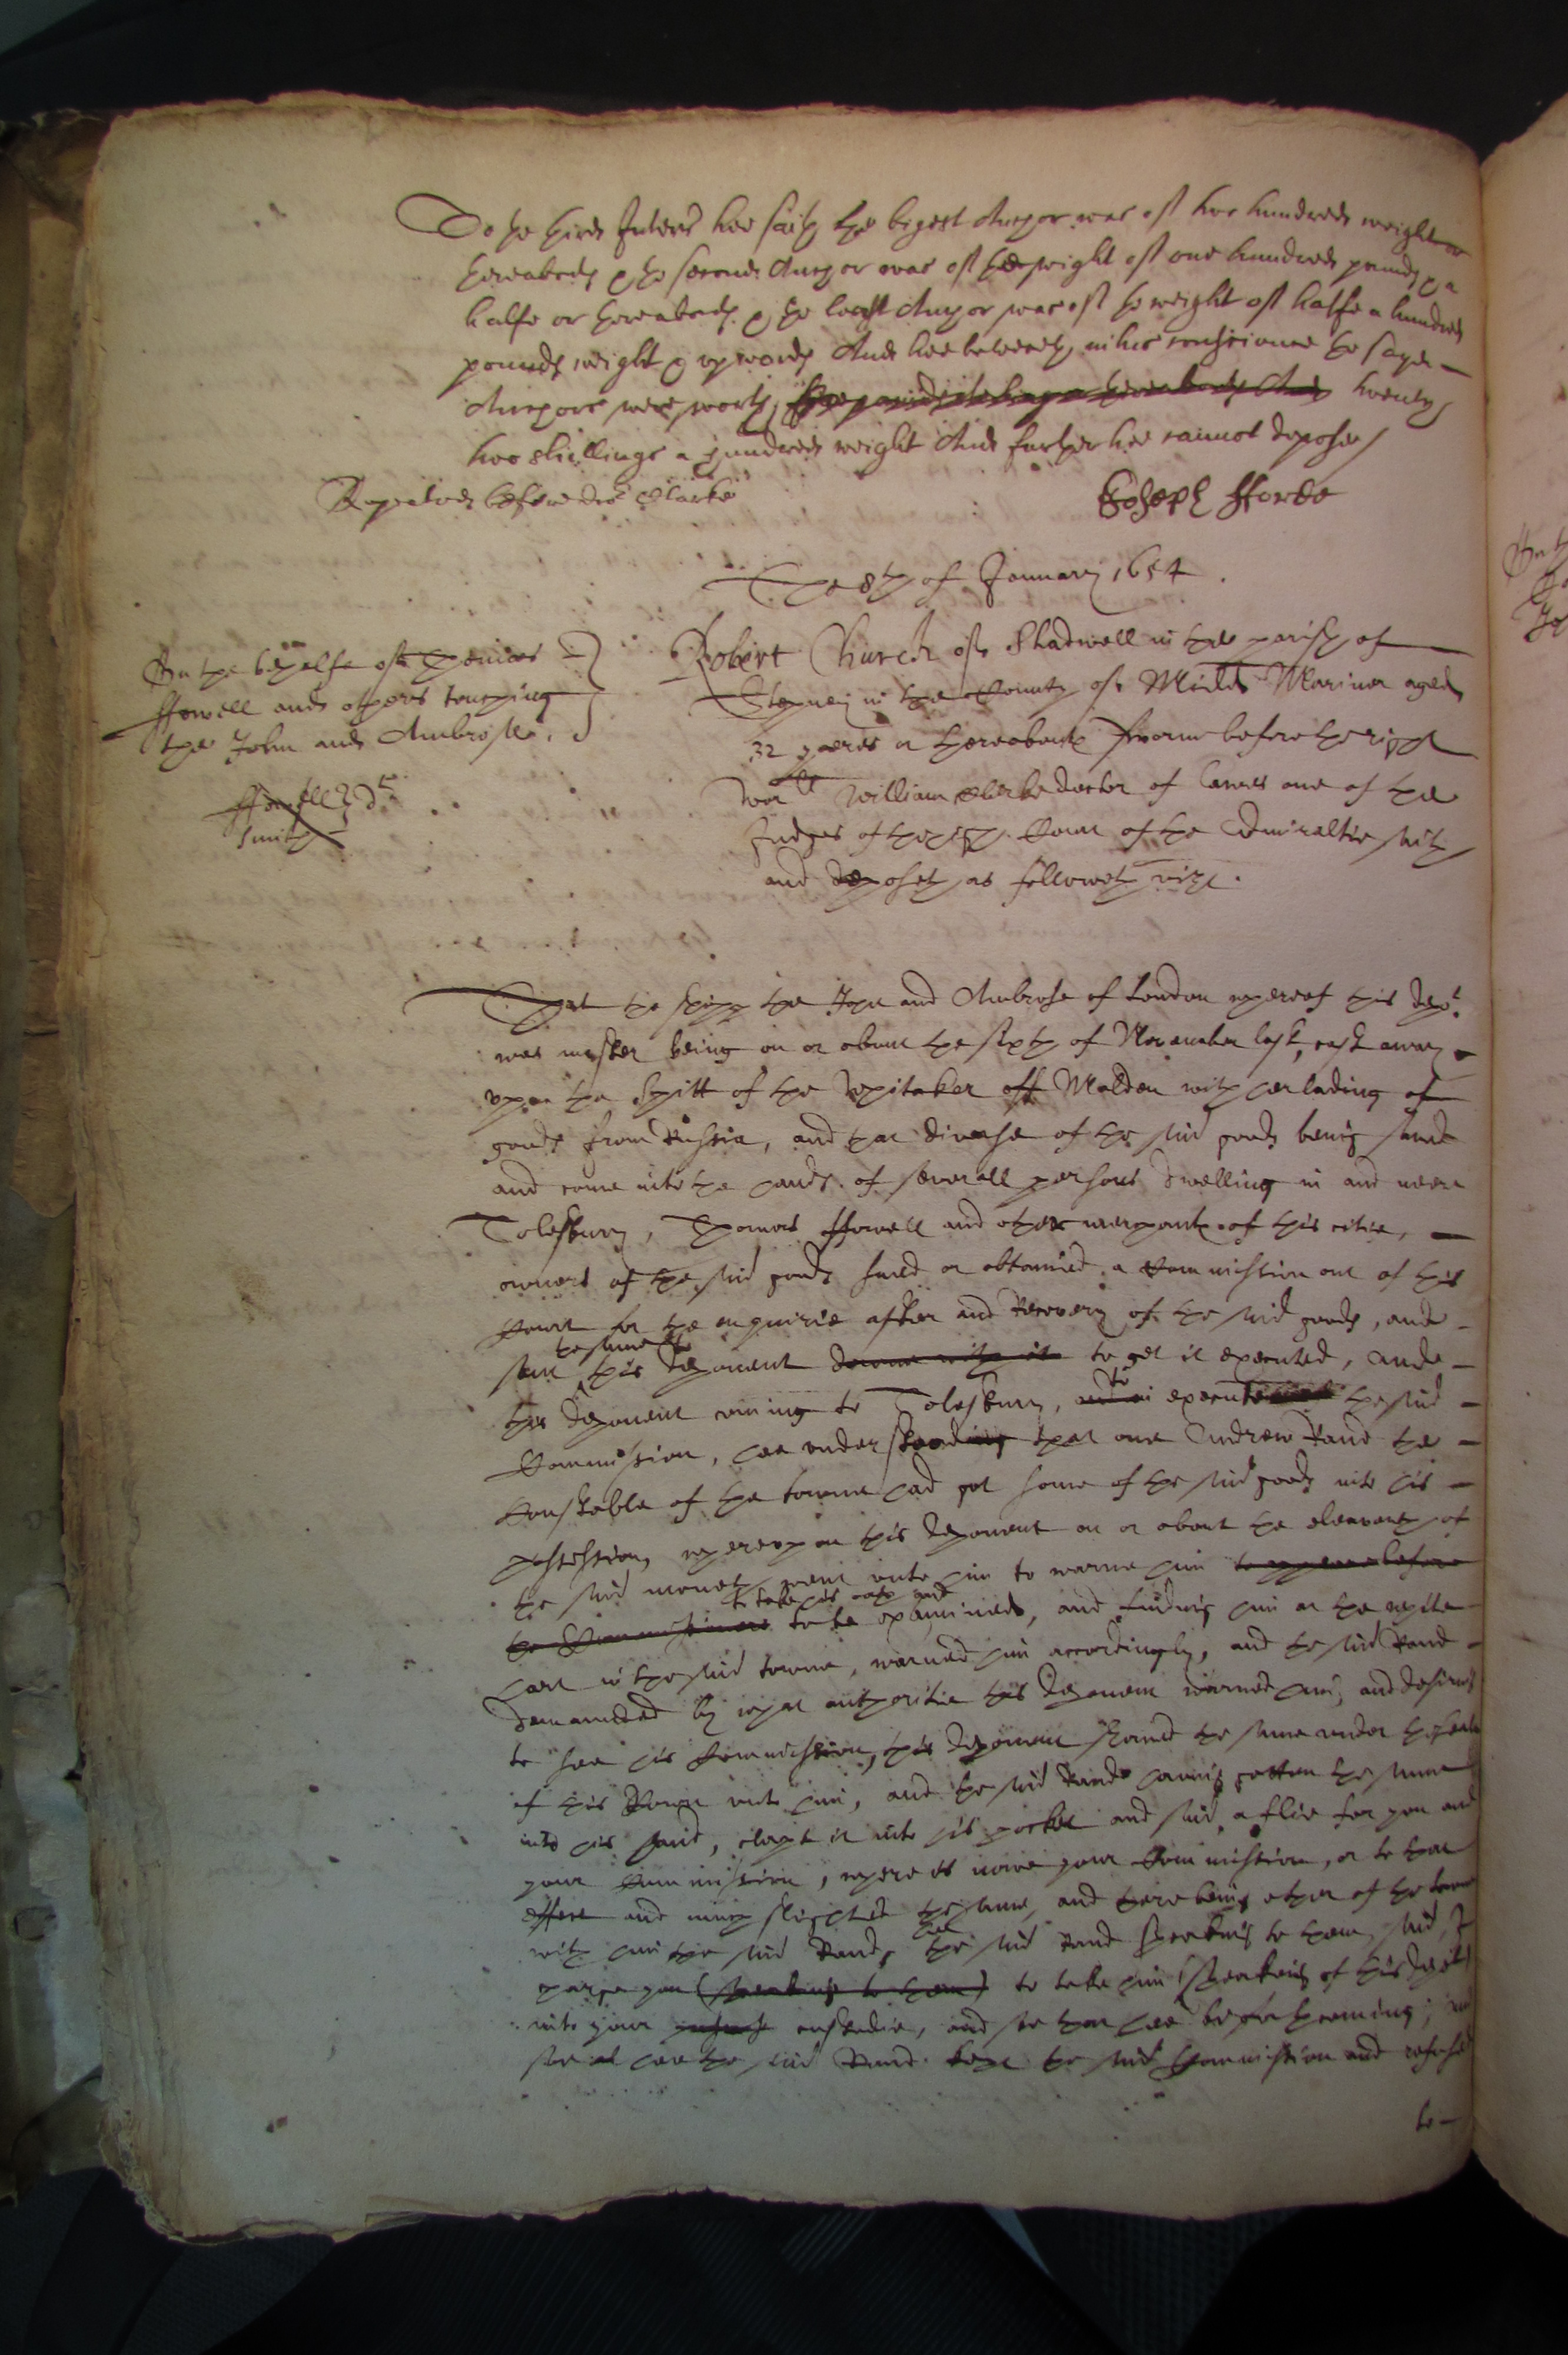 To the third Interr hee saith the bigest Anchor was of two hundred weight or
thereabouts & the second Anchor was of the weight of one hundred pounds & a
halfe or thereabouts & the least Anchor was of the weight of halfe a hundred
pounds weight & upwards And hee beleeveth in his conscience the sayd
Anchors were worth twenty
two shillings a hundred weight And further hee cannot depose
Repeated before dor Clarke Joseph Fforde
The 8th of January 1654.
On the behalfe of Thomas
Ffowell and others touching
the John and Ambrose.
Ffowell dt
Smith
Robert Church of Shadwell in the parish of
Stepney in the County of Midds Mariner aged
32 yeeres or thereabouts sworne before the right
worll William Clerke doctor of lawes one of the
Judges of the high Court of the Admiraltie saith
and deposeth as followeth vizt.
That the shipp the John and Ambrose of London whereof this dept
was master being on or about the sixth of November last, cast away
upon the Spitt of the Whitaker off Malden with her lading of
goods from Russia, and that diverse of the said goods being saved
and come into the hands of severall persons dwelling in and neere
Tolesbury, Thomas Ffowell and other merchants of this citie,
owners of the said goods sued or obtained a Commission out of this
Court for the enquirie after and Recovery of the said goods, and
the same to
sent this deponent downe with it to get it executed, and
this deponent coming to Tolesbury, to execute the said
Commission, hee understood that one Andrew Rand the
Constable of the towne had got some of the said goods into his
possession, whereupon this deponent on or about the eleaventh of
the said moneth went unto him to warne him to appeare before
to take his oath and
the Commissioners to be examined, and finding him at the
in the said towne, warned him accordingly, and the said Rand
demanded by what authoritie this deponent warned him, and desired
to see his Commission, this deponent shewed the same under the seale
of this Court unto him, and the said Rand having gotten the same
into his hand, clapt it into his pocket and said, a flie for you and
your Commission, where is nowe your Commission, or to that
effect and much slighted the same, and there being other of the towne
with him the said Rand, hee the said Rand speaking to them said, I
charge you (speaking to them) to take him (speaking of this dept)
into your custodie, and see that hee be forthcoming; and
hee the said Rand kept the said Commission and refused
to